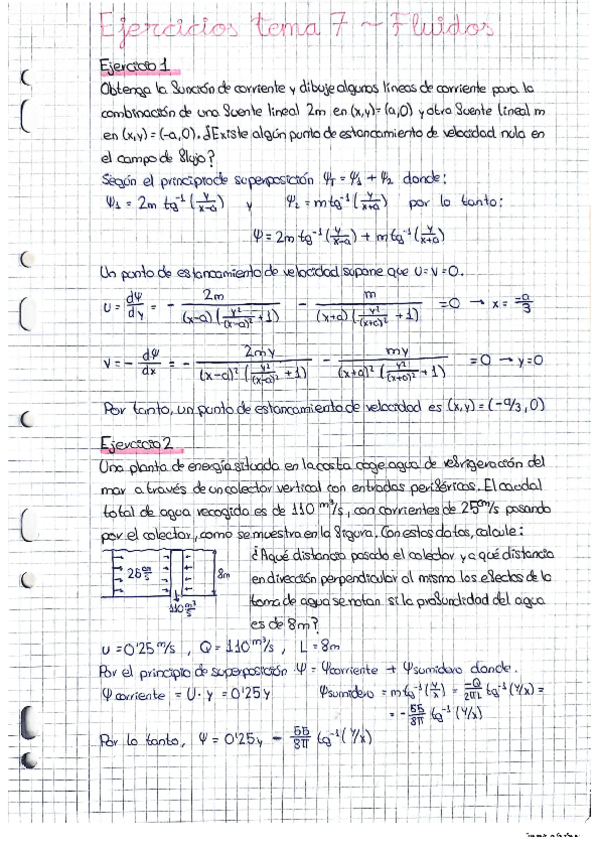 Ejercicios tema 7 ~ Fluidos
Ejercicio 1
Obtenga la función de corriente y dibuje algunas líneas de corriente para la
combinación de una fuente lineal 2m en (x,y)=(a,0) y otra fuente lineal m
en (x,y)=(-a,0). ¿Existe algún punto de estancamiento de velocidad nula en
el campo de flujo?
Según el principio de superposición ΨT = Ψ1 + Ψ2 donde:
Ψ1 = 2m tg⁻¹(y/(x-a)) y Ψ2 = m tg⁻¹(y/(x+a)) por lo tanto:
Ψ = 2m tg⁻¹(y/(x-a)) + m tg⁻¹(y/(x+a))
Un punto de estancamiento de velocidad supone que U=V=0.
U = dΨ/dy = - 2m/((x-a)(y²/(x-a)²+1)) - m/((x+a)(y²/(x+a)²+1)) =0 → x = -a/3
V = - dΨ/dx = - 2my/((x-a)²(y²/(x-a)²+1)) - my/((x+a)²(y²/(x+a)²+1)) =0 → y=0
Por tanto, un punto de estancamiento de velocidad es (x,y) = (-a/3, 0)
Ejercicio 2
Una planta de energía situada en la costa coge agua de refrigeración del
mar a través de un colector vertical con entradas periféricas. El caudal
total de agua recogida es de 110 m³/s, con corrientes de 25 cm/s pasando
por el colector, como se muestra en la figura. Con estos datos, calcule:
25 cm/s
8m
110 m³/s
¿A qué distancia pasado el colector y a qué distancia
en dirección perpendicular al mismo los efectos de la
toma de agua se notan si la profundidad del agua
es de 8m?
U = 0'25 m/s , Q = 110 m³/s , L = 8m
Por el principio de superposición Ψ = Ψcorriente + Ψsumidero donde.
Ψcorriente = U·y = 0'25y Ψsumidero = m tg⁻¹(y/x) = -Q/2πL tg⁻¹(y/x) =
= - 55/8π tg⁻¹(y/x)
Por lo tanto, Ψ = 0'25y - 55/8π tg⁻¹(y/x)